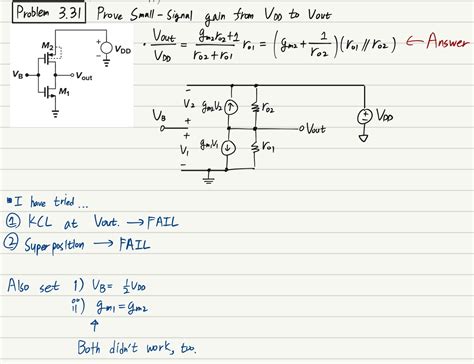 Problem 3.31 Prove Small-Signal gain from VDD to Vout
M2
VDD
VB
Vout
M1
Vout/VDD = (gm2ro2+1)/(ro2+ro1) ro1 = (gm2 + 1/ro2)(ro1 // ro2) ← Answer
−
V2 gm2V2 ro2
+
VB
Vout
VDD
+
V1 gm1V1 ro1
−
I have tried...
① KCL at Vout. → FAIL
② Superposition → FAIL
Also set i) VB = ½VDD
ii) gm1 = gm2
Both didn't work, too.